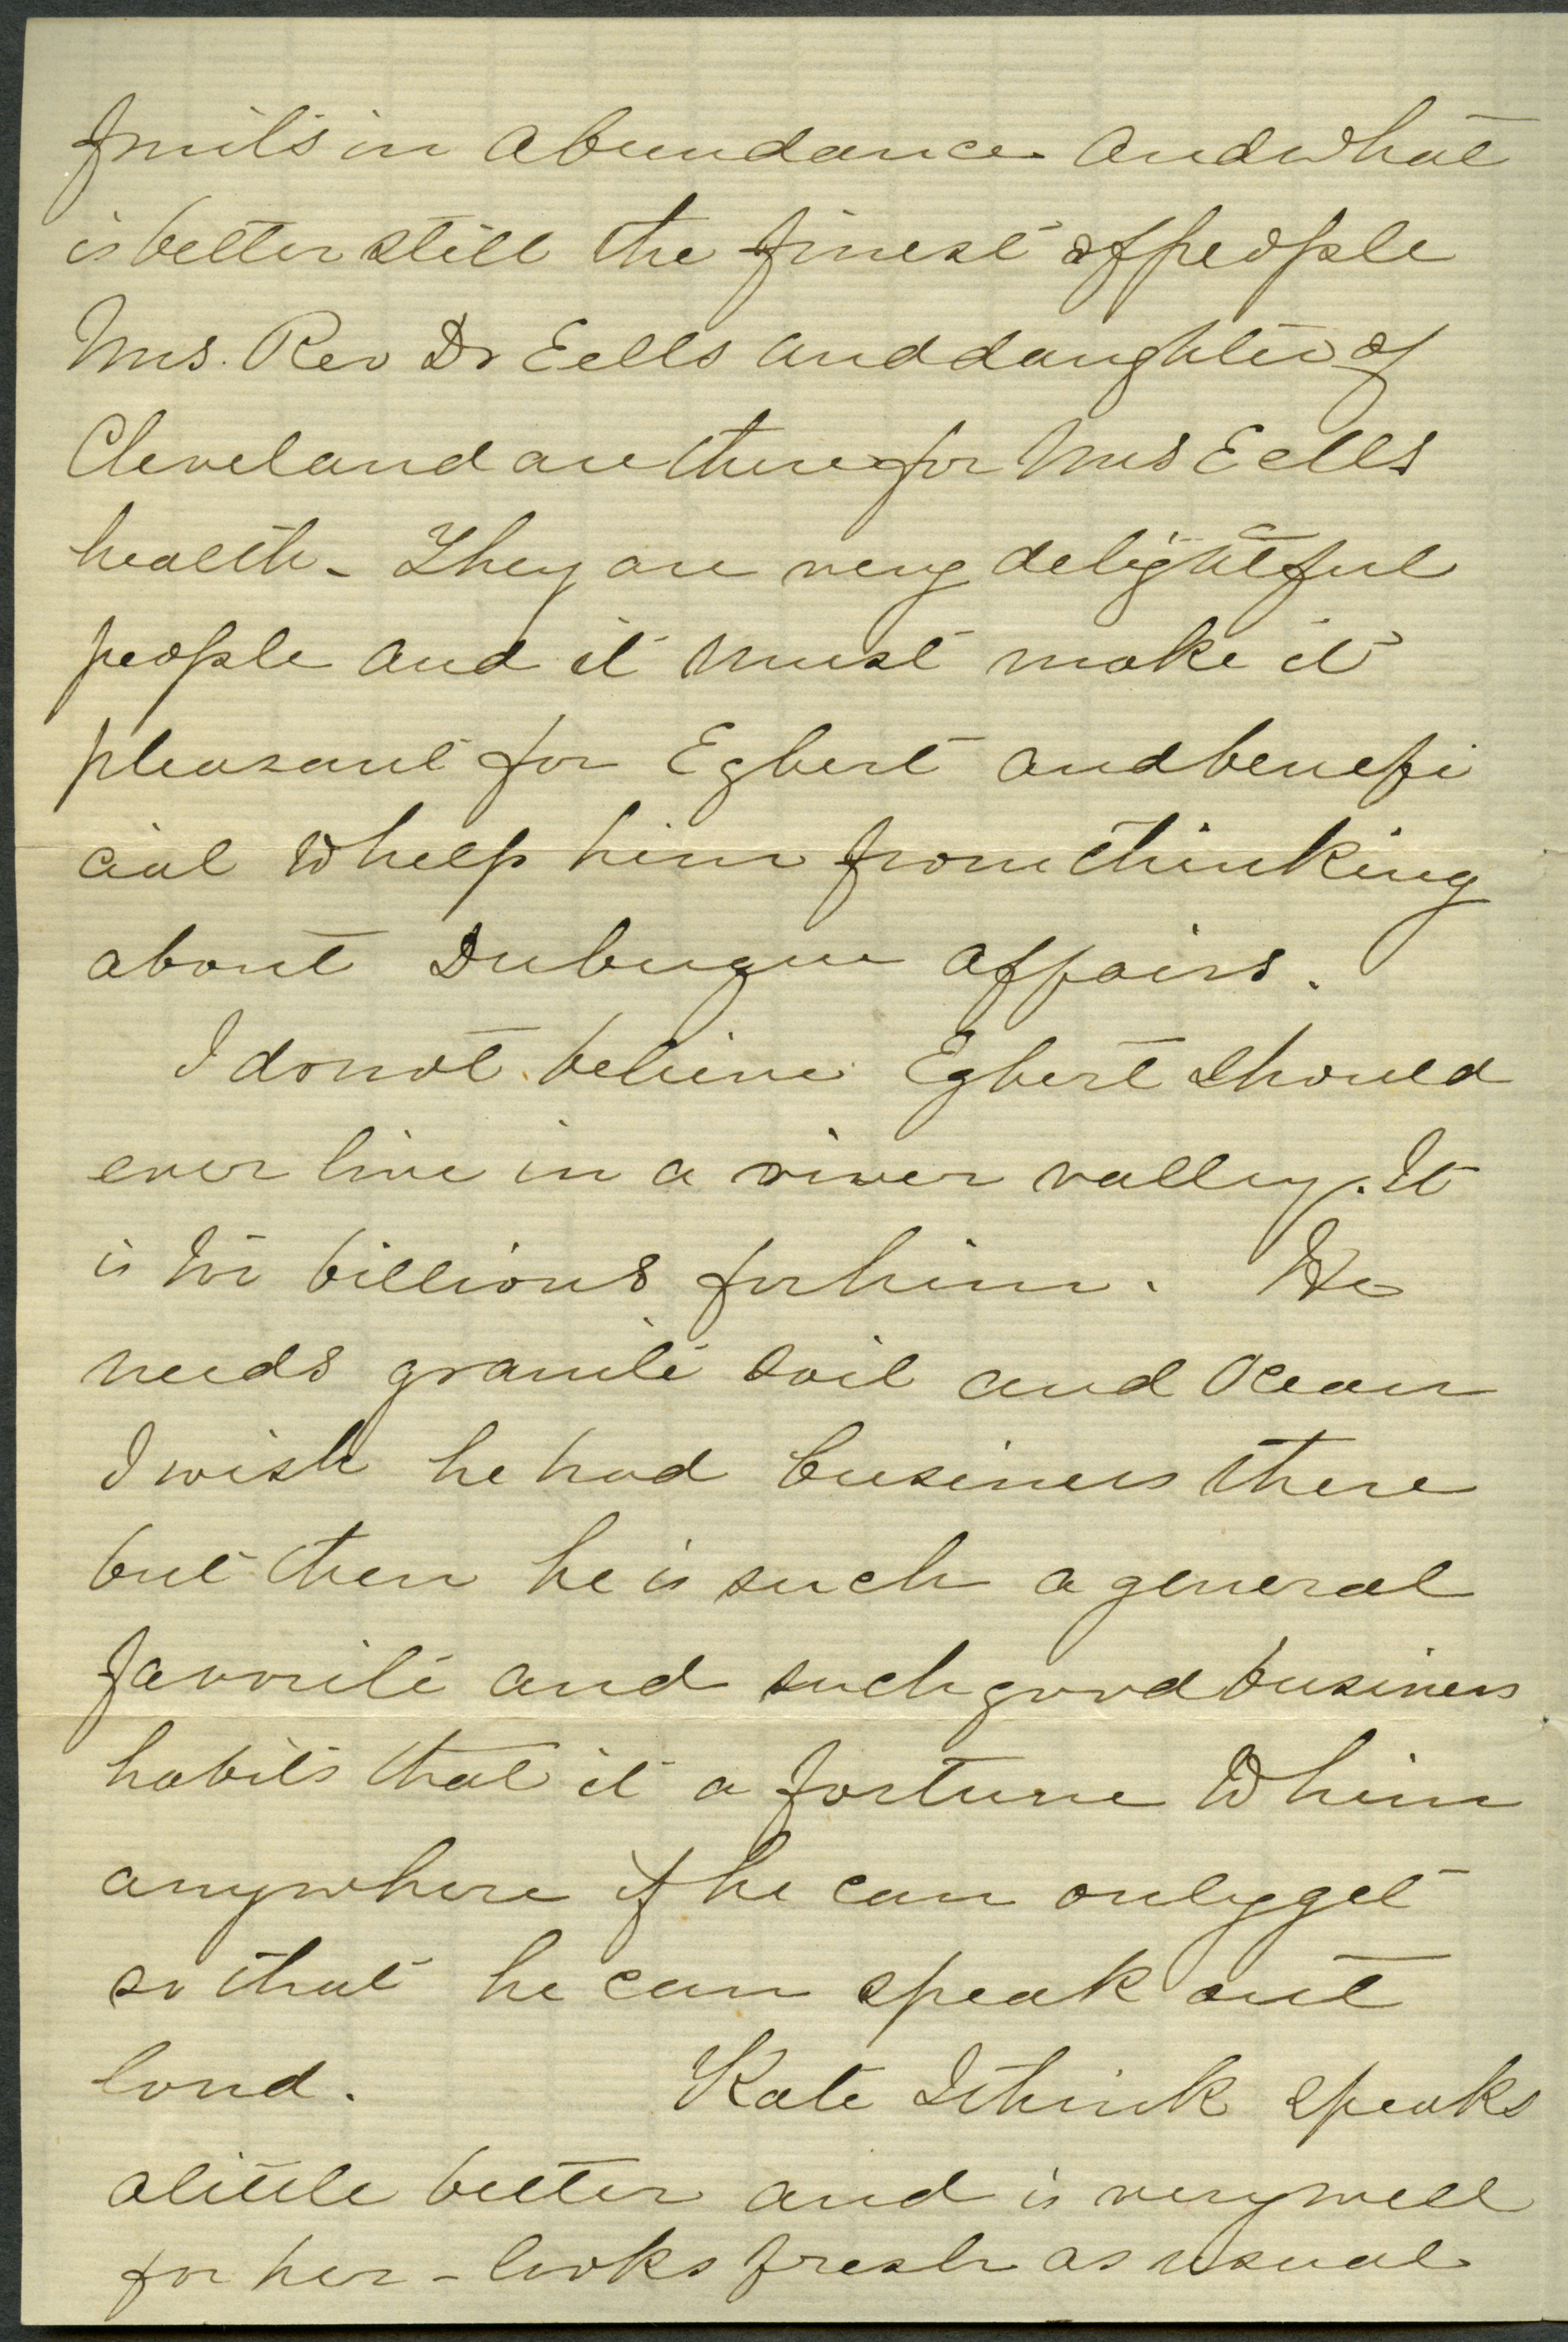 fruits in abundance and what
is better still the finest of people
Mrs. Rev Dr Eells and daughter of
Cleveland are there for Mrs Eells
health - They are very delightful
people and it must make it
pleasant for Egbert and benefi
cial to help him from thinking
about Dubuque affairs.
I do not believe Egbert should
ever live in a river valley. It
is too billious for him. He
needs granite soil and Ocean
I wish he had business there
but then he is such a general
favorite and such good business
habits that it a fortune to him
anywhere if he can only get
so that he can speak out
loud. Kate I think speaks
a little better and is very well
for her - looks fresh as usual